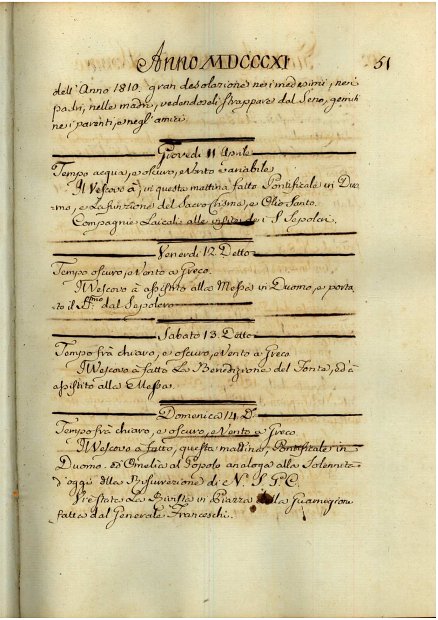 Anno MDCCCXI
51
dell'Anno 1810. gran desolazione nei medesimi, nei
padri, nelle madri, vedendoseli strappare dal seno, gemiti
nei parenti, e negl'amici.
Giovedi 11 Aprile
Tempo acqua, e oscuro, e Vento variabile
Il Vescovo à in questa mattina fatto Pontificale in Duo-
mo, e La funzione del Sacro Crisma, e Olio Santo.
Compagnie Laicali alle visite de i S. Sepolcri.
Venerdi 12 Detto
Tempo oscuro, e Vento a Greco.
Il Vescovo à assistito alla Messa in Duomo, e porta-
to il SSmo dal Sepolcro
Sabato 13. Detto
Tempo frà chiaro, e oscuro, e Vento a Greco
Il Vescovo à fatto La Benedizione del Fonte, ed à
assistito alla Messa.
Domenica 14 Do
Tempo frà chiaro, e oscuro, e Vento a Greco
Il Vescovo à fatto, questa mattina, Pontificale in
Duomo. ed Omelia al Popolo analoga alla Solennità
d'oggi della Resurrezione di N. S. G. C.
Vi è stata La Rivista in Piazza della Guarnigione
fatta dal Generale Franceschi.